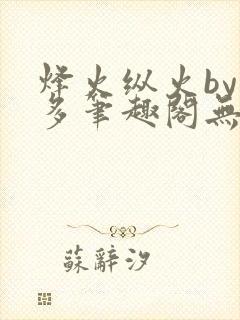 烽火纵火by
多笔趣阁無
蘇辭汐